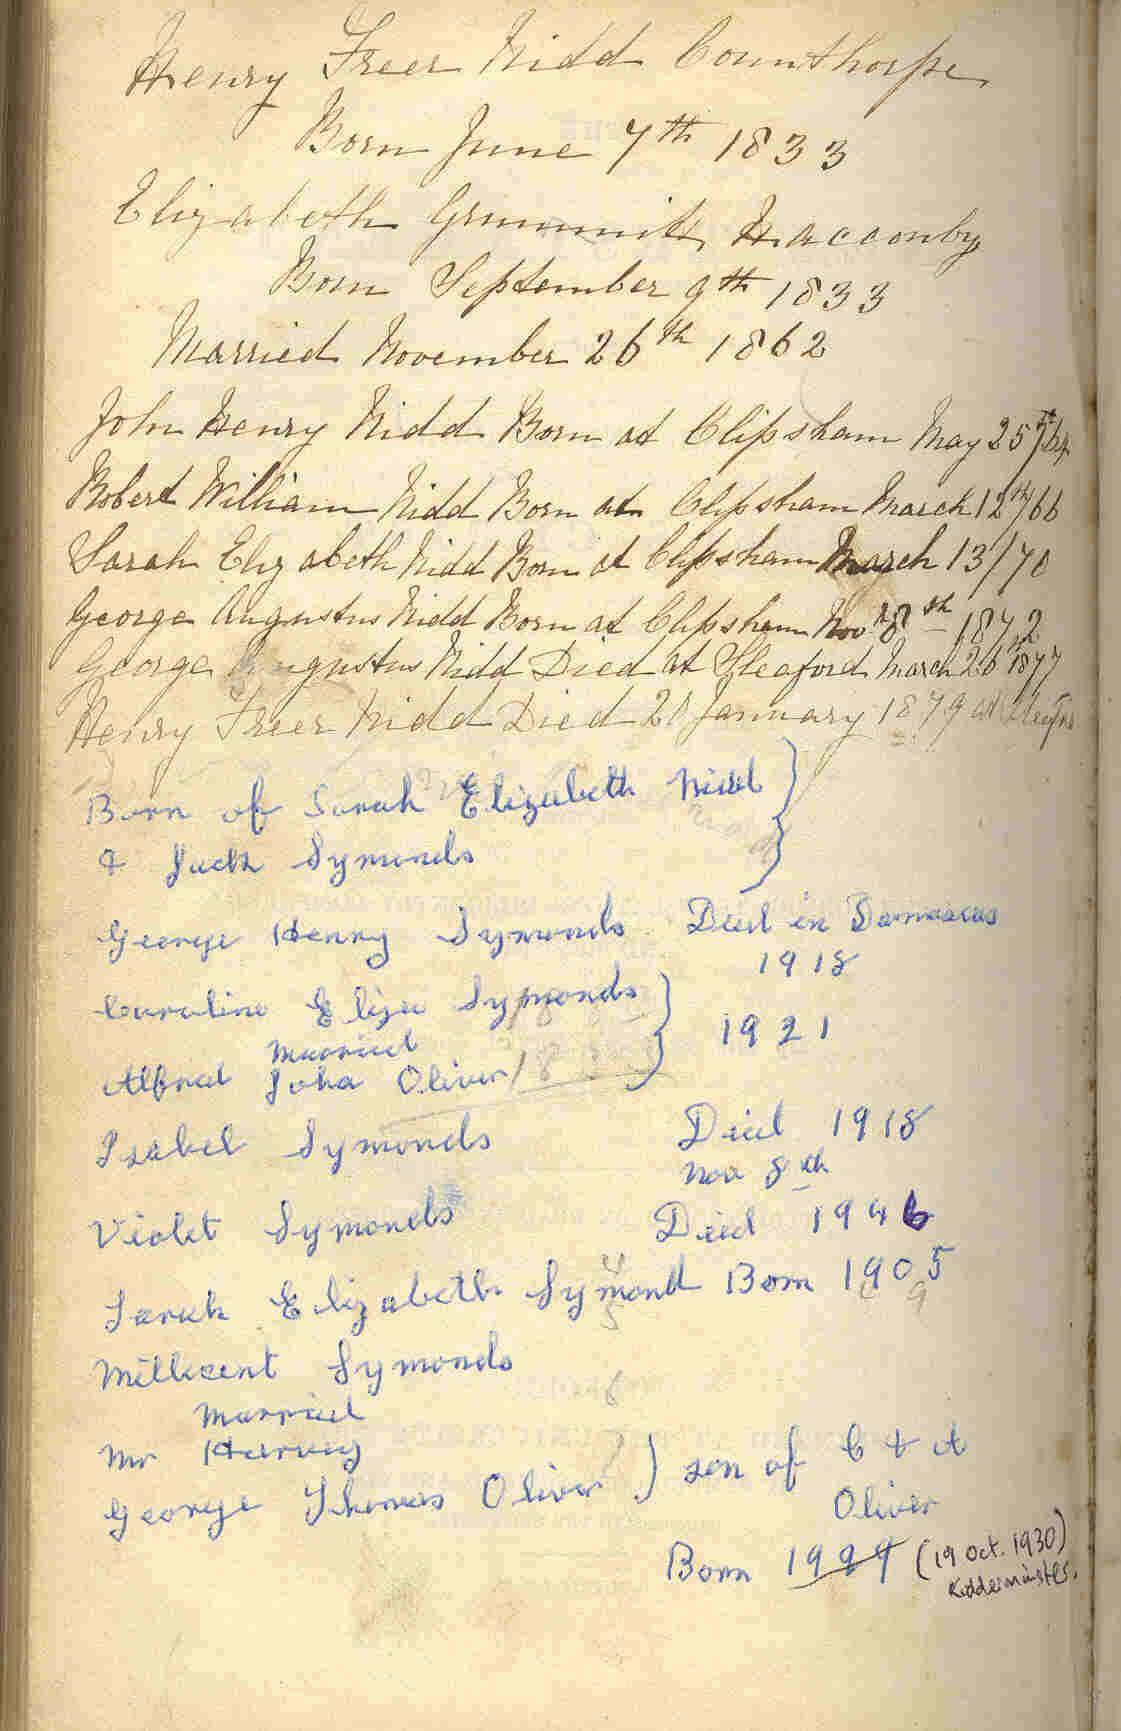 Henry Freer Nidd Counthorpe
Born June 7th 1833
Elizabeth Grummitt Hacconby
Born September 9th 1833
Married November 26th 1862
John Henry Nidd Born at Clipsham May 25th
Robert William Nidd Born at Clipsham March 12th/66
Sarah Elizabeth Nidd Born at Clipsham March 13/70
George Augustus Nidd Born at Clipsham Nov 8th 1872
George Augustus Nidd Died at Sleaford March 26th 1877
Henry Freer Nidd Died 28 January 1879 at
Born of Sarah Elizabeth Nidd }
& Jack Symonds }
George Henry Symonds Died in Damascus
1918
Caroline Eliza Symonds }
Married 1921
Alfred John Oliver }
Isabel Symonds Died 1918
Nov 8th
Violet Symonds Died 1946
Sarah Elizabeth Symond Born 1905
Millicent Symonds
Married
Mr Harvey
George Thomas Oliver ) son of C & A
Oliver
Born 1929 (19 Oct. 1930)
Kidderminster.